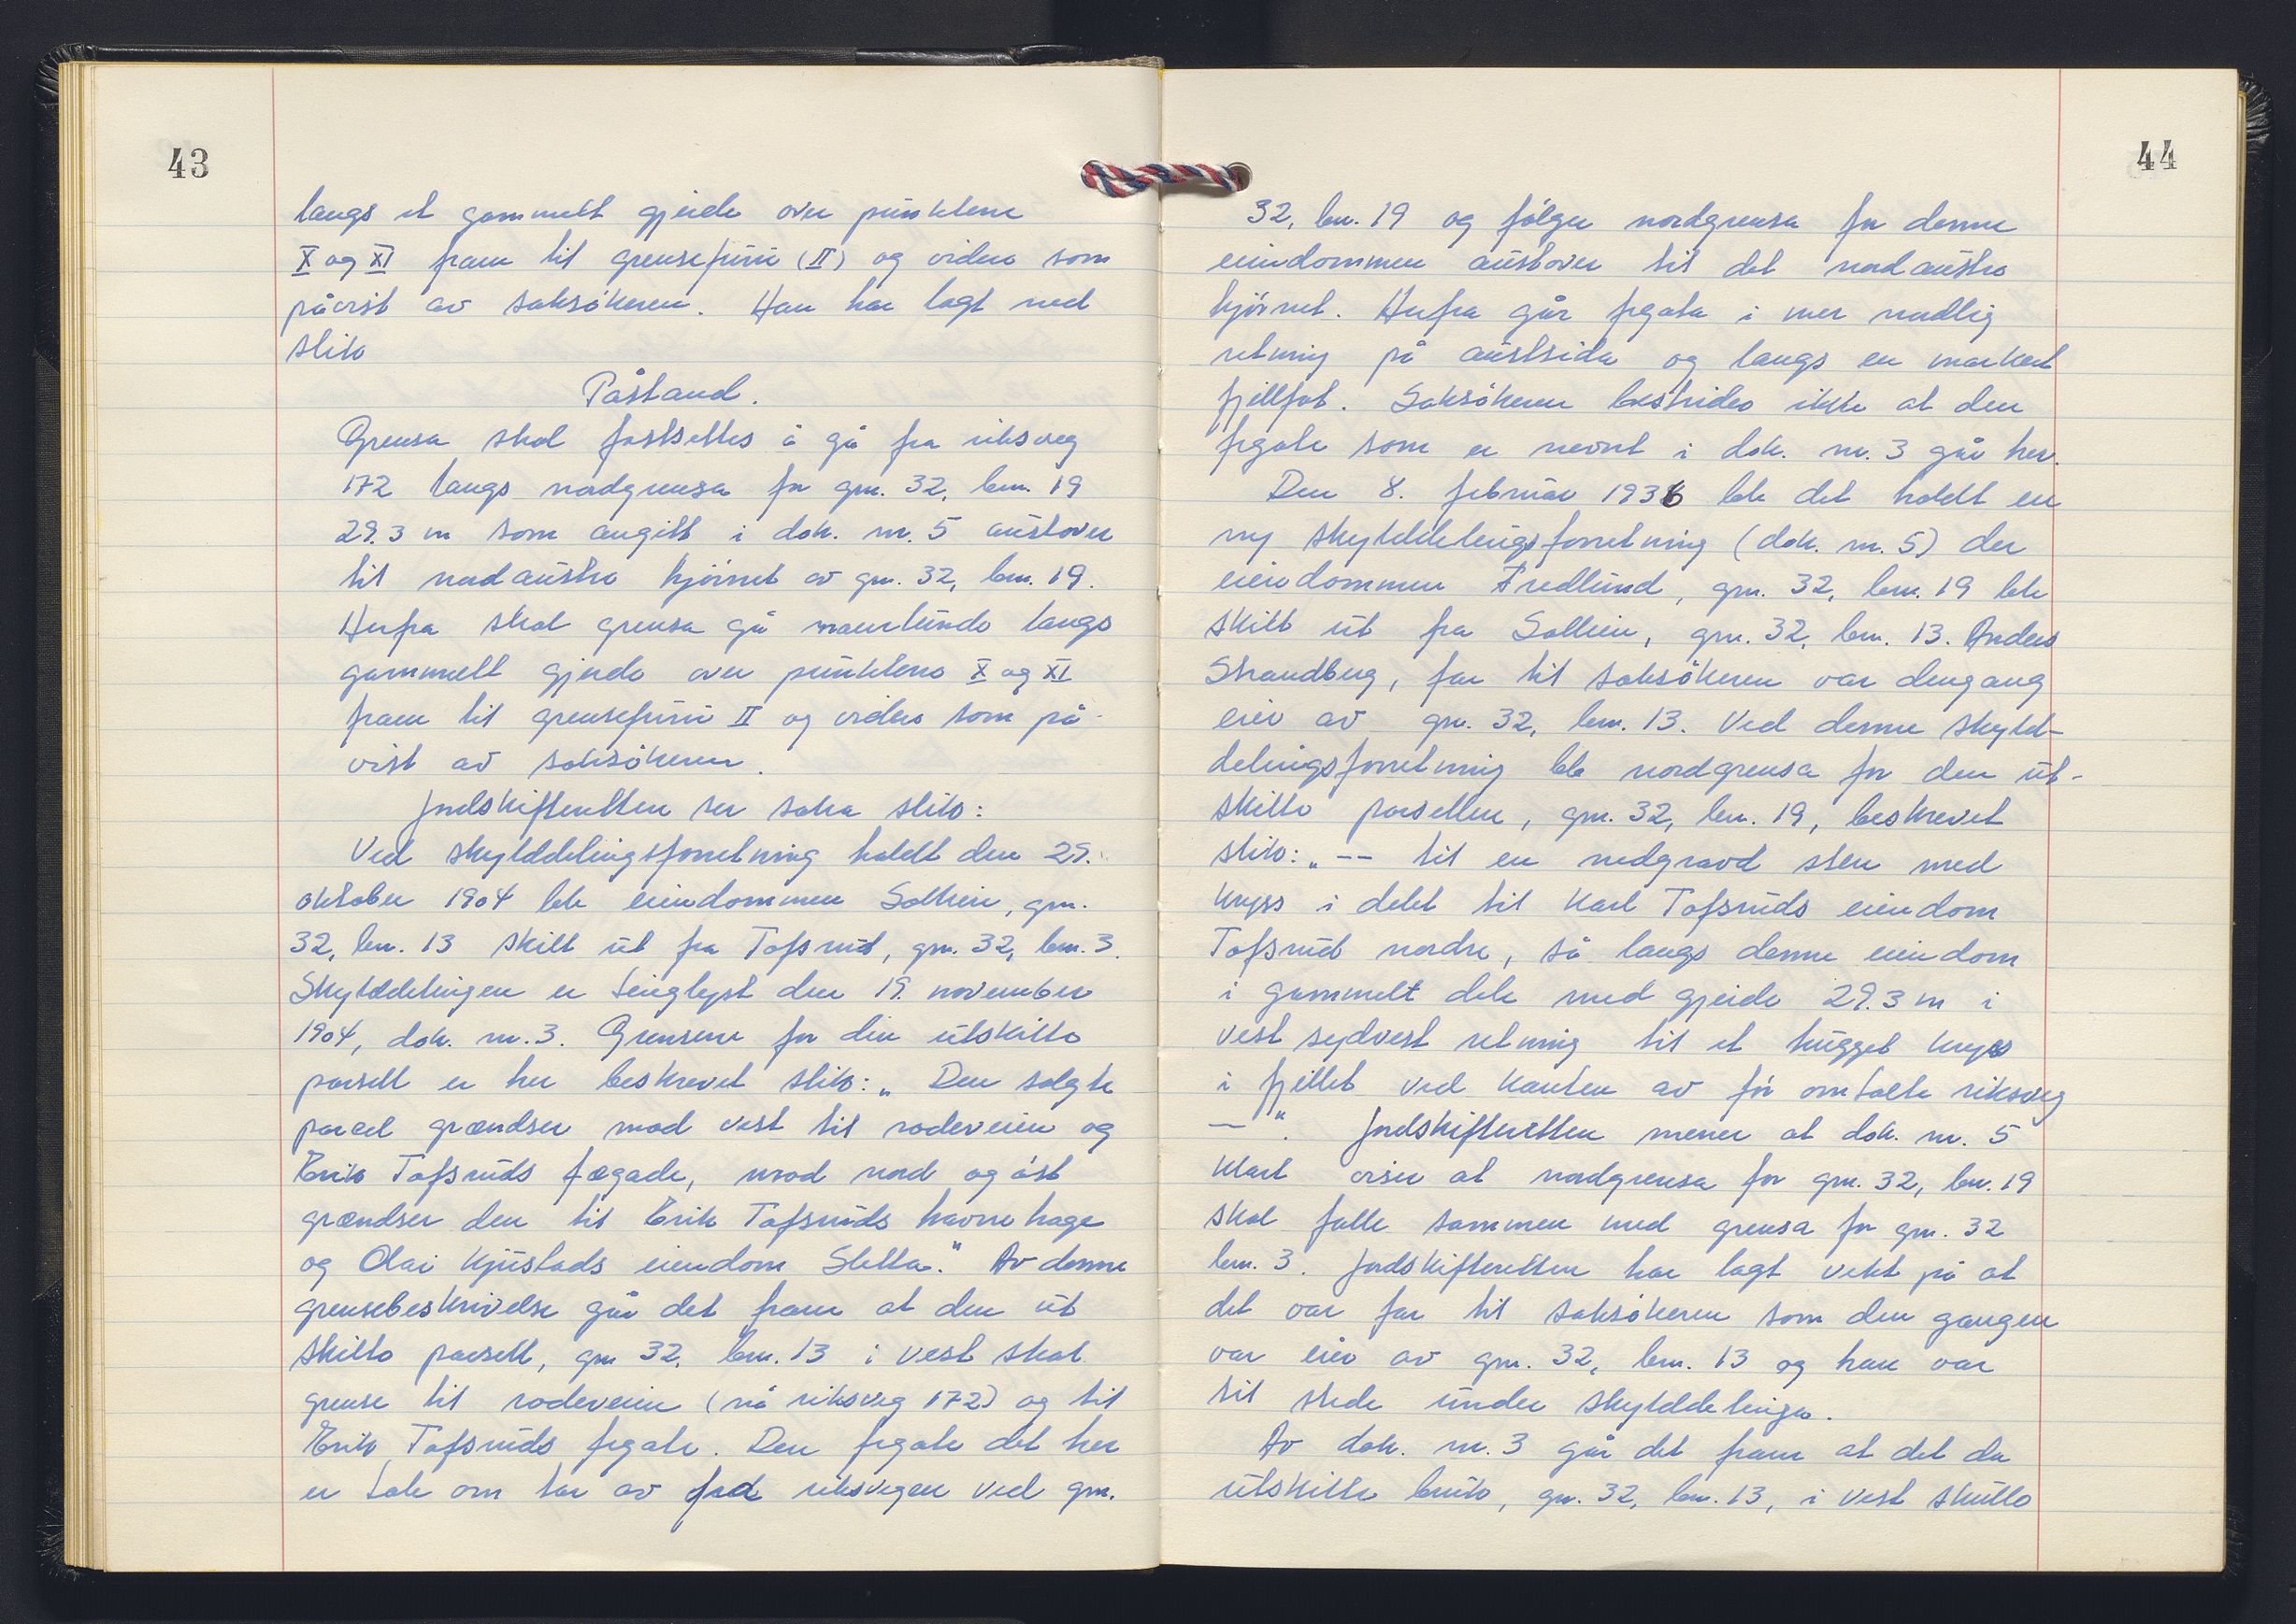 43
langs et gammelt gjerde over punktene
X og XI fram til grensefuru (II) og videre som
påvist av saksøkeren. Han har lagt ned
slik
Påstand.
Grensa skal fastsettes å gå fra riksveg
172 langs nordgrensa for gnr. 32, bnr. 19
29.3 m som angitt i dok. nr. 5 austover
til nordaustre hjørnet av gnr. 32, bnr. 19.
Herfra skal grensa gå langs
gammelt gjerde over punktene X og XI
fram til grensefuru II og videre som på-
vist av saksøkeren.
Jordskifteretten ser saka slik:
Ved skylddelingsforretning holdt den 29.
oktober 1904 ble eiendommen Solheim, gnr.
32, bnr. 13 skilt ut fra Tofsrud, gnr. 32, bnr. 3.
Skylddelingen er tinglyst den 19. november
1904, dok. nr. 3. Grensene for den utskilte
parsell er her beskrevet slik: „Den solgte
parcel grændser mod vest til rodeveien og
Erik Tofsruds fægade, mod nord og øst
grændser den til Erik Tofsruds havnehage
og Olai Kjustads eiendom Sletta." Av denne
grensebeskrivelse går det fram at den ut
skilte parsell, gnr 32, bnr. 13 i vest skal
grense til rodeveien (nå riksveg 172) og til
Erik Tofsruds fegate. Den fegate det her
er tale om tar av fra riksvegen ved gnr.
44
32, bnr. 19 og følger nordgrensa for denne
eiendommen austover til det nordaustre
hjørnet. Herfra går fegata i mer nordlig
retning på austsida og langs en markert
fjellfot. Saksøkeren bestrides ikke at den
fegate som er nevnt i dok. nr. 3 går her.
Den 8. februar 1936 ble det holdt en
ny skylddelingsforretning (dok. nr. 5) der
eiendommen Fredlund, gnr. 32, bnr. 19 ble
skilt ut fra Solheim, gnr. 32, bnr. 13. Anders
Strandberg, far til saksøkeren var dengang
eier av gnr. 32, bnr. 13. Ved denne skyld-
delingsforretning ble nordgrensa for den ut-
skilte parsellen, gnr. 32, bnr. 19, beskrevet
slik: „-- til en nedgravd sten med
kryss i delet til Karl Tofsruds eiendom
Tofsrud nordre, så langs denne eiendom
i gammelt dele med gjerde 29.3 m i
vest sydvest retning til et hugget kryss
i fjellet ved kanten av før omtalte riksveg
—". Jordskifteretten mener at dok. nr. 5
klart viser at nordgrensa for gnr. 32, bnr. 19
skal falle sammen med grensa for gnr. 32
bnr. 3. Jordskifteretten har lagt vekt på at
det var far til saksøkeren som den gangen
var eier av gnr. 32, bnr. 13 og han var
til stede under skylddelinga.
Av dok. nr. 3 går det fram at det da
utskilte bruk, gnr. 32, bnr. 13, i vest skulle